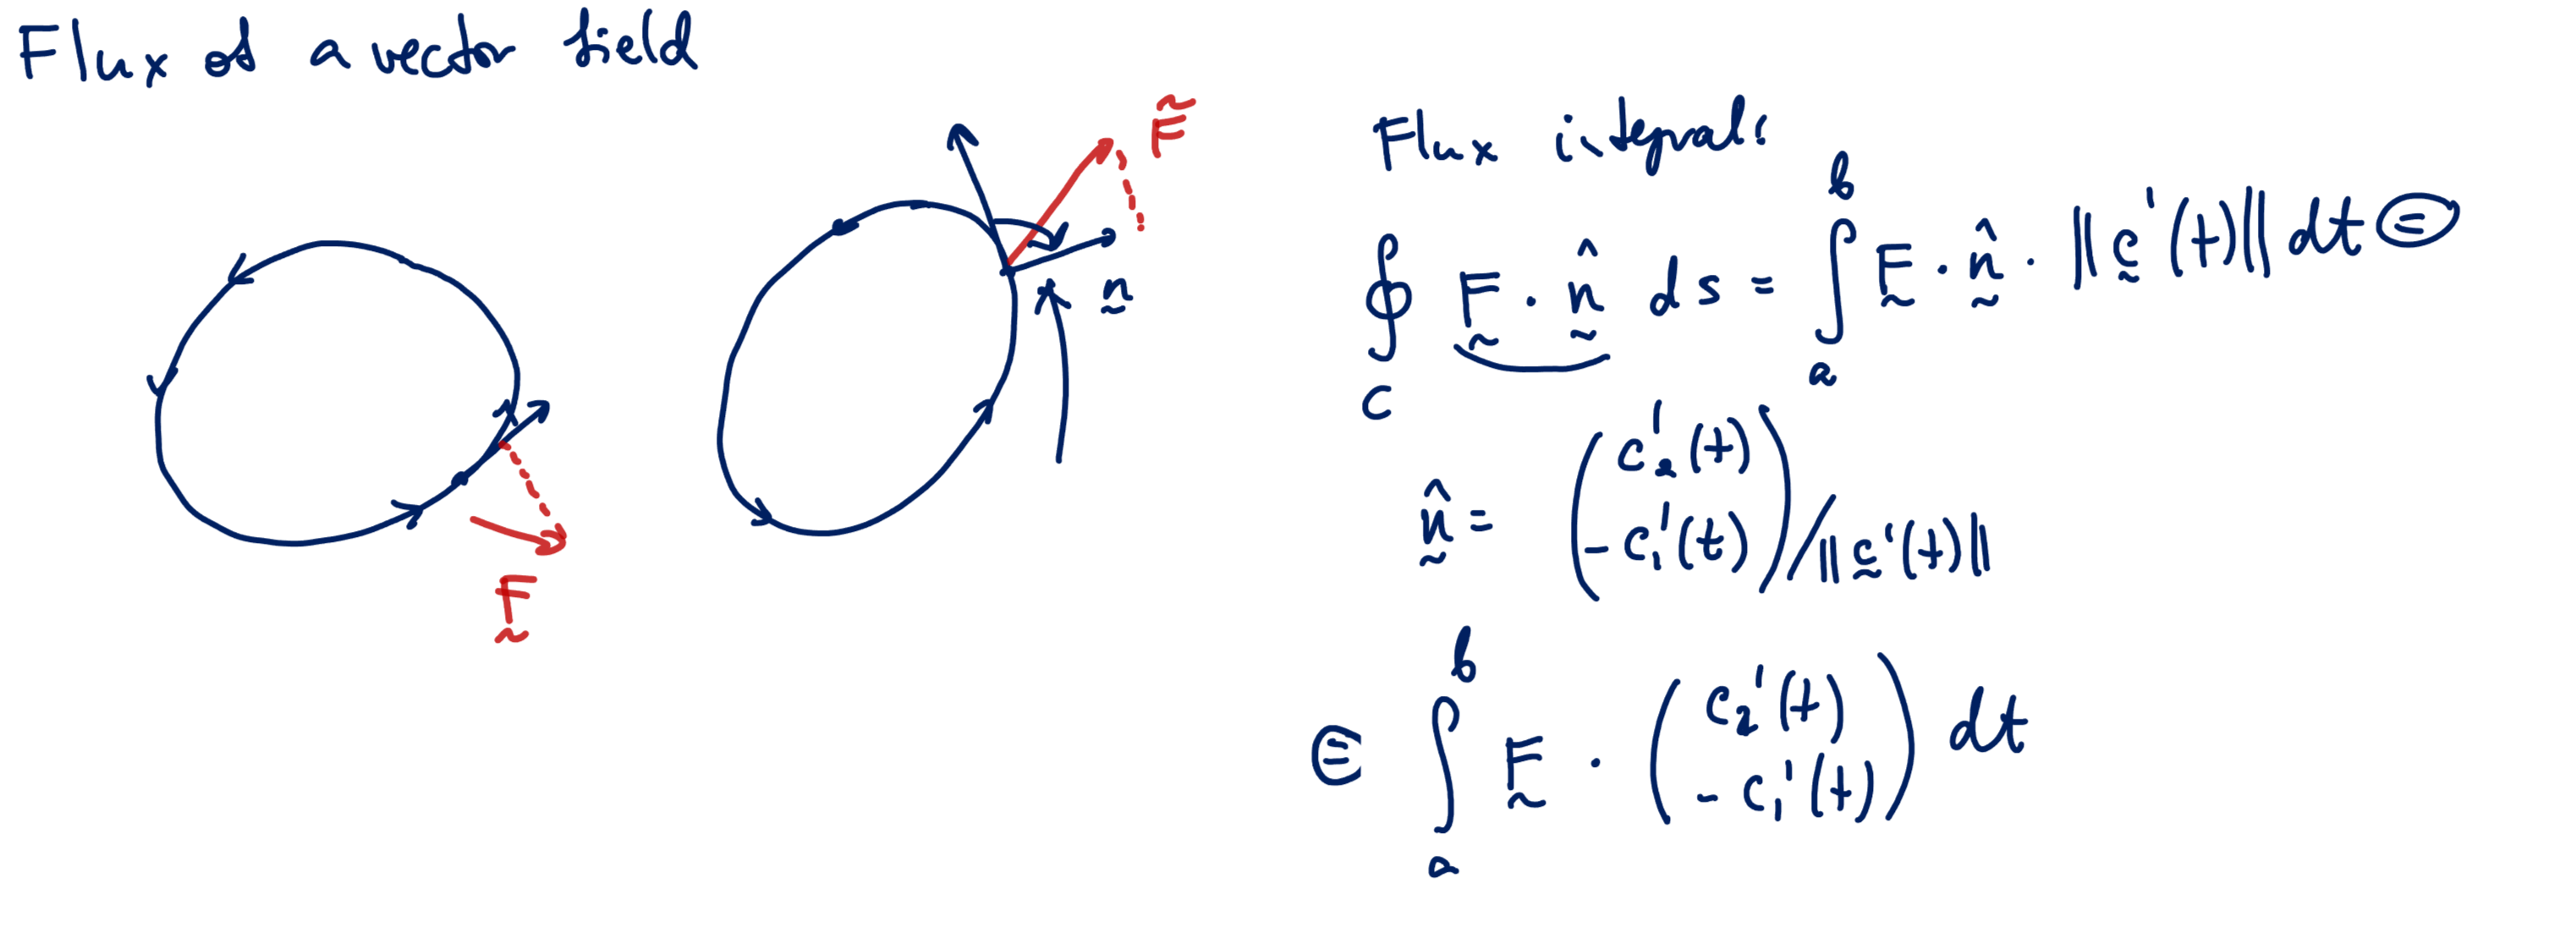 Flux of a vector field
F̰
F̃
ñ
Flux integral:
∮_C F̰ · n̰̂ ds = ∫_a^b F̰ · n̰̂ · ‖c̰'(t)‖ dt ⊜
n̰̂ = (c₂'(t), -c₁'(t)) / ‖c̰'(t)‖
⊜ ∫_a^b F̰ · (c₂'(t), -c₁'(t)) dt